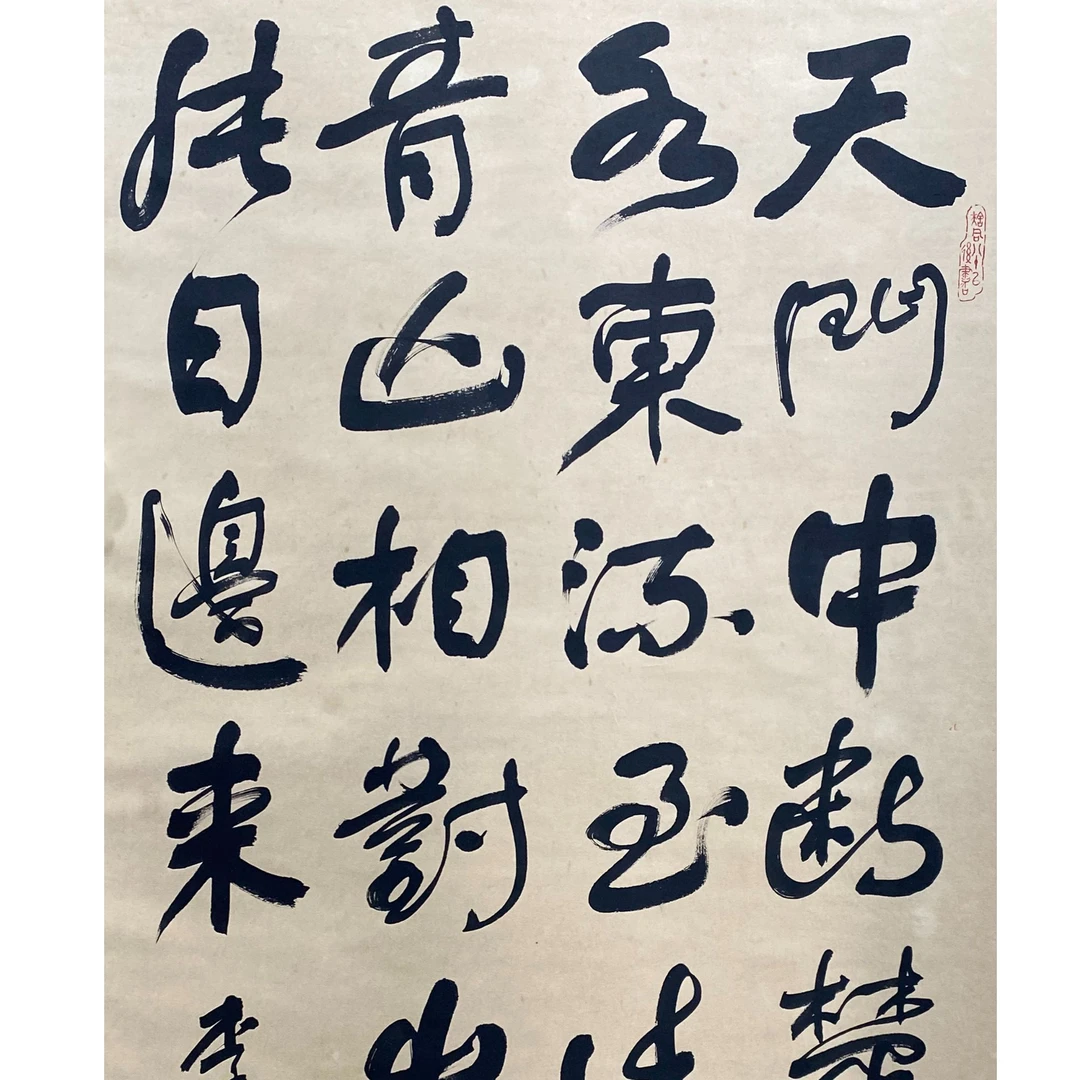 天門中斷楚
水東流至此
青山相對出
片日邊來李